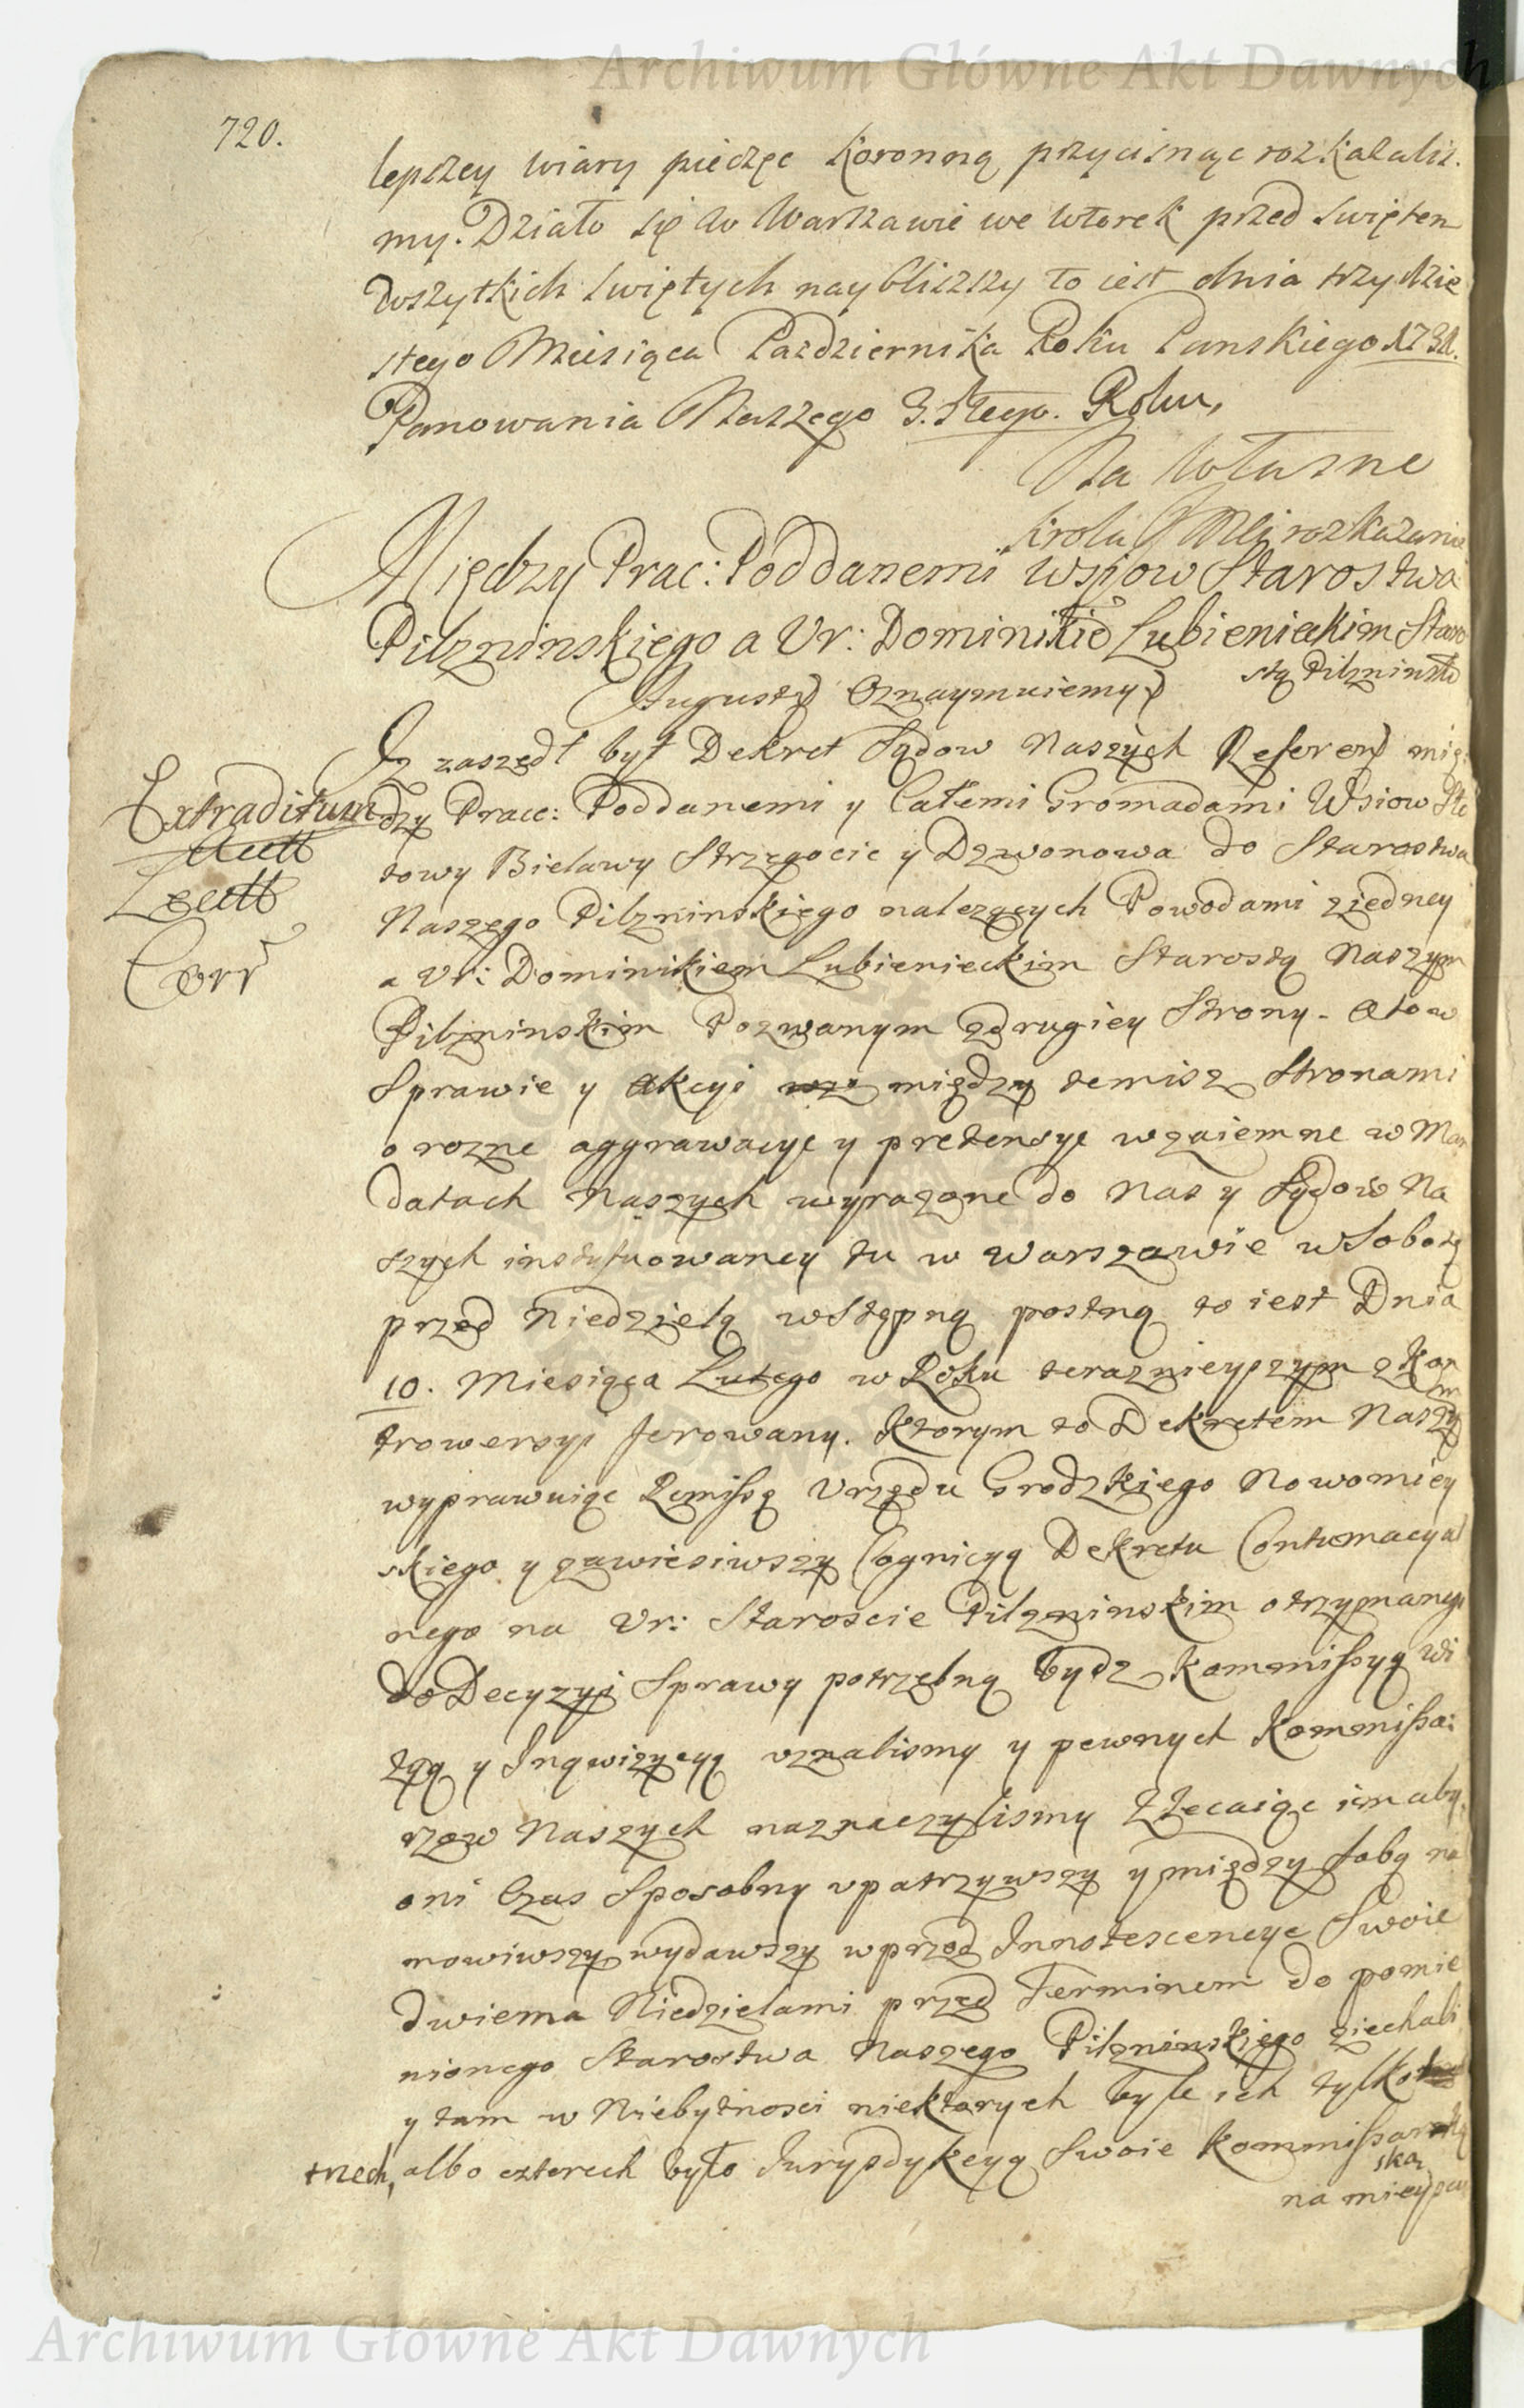 Archiwum Główne Akt Dawnych
720.
lepszey wiary pieczęc Koronną przycisnąc rozkazalis.
my. Działo się w Warszawie we wtorek przed Swiętem
Wszytkich Swiętych nayblizszy to iest dnia trzydzie
stego Miesiąca Pazdziernika Roku Panskiego
Panowania Naszego 3. Steg. Roku,
Na własne
Krola Mci rozkazanie
Między Prac: Poddanemi wsiow Starostwa
Pilzninskiego a Ur: Dominikiē Lubienieckim Staro
stą Pilzninsk
August Oznaymuiemy
Iz zaszedł był Dekret Sądow Naszych Referen mię
Extraditum
dzy Prace: Poddanemi y Całemi Gromadami Wsiow
towy Bielawy Strzegocic y Dzwonowa do Starostwa
Lectt
Naszego Pilzninskiego nalezących Powodami z iedney
Corr
a Ur: Dominikiem Lubienieckim Starostą Naszym
Pilzninskim Pozwanym z drugiey Strony. A to w
Sprawie y Akcyi między temisz Stronami
o rozne aggrawacye y pretensye wzaiemne w Man
datach Naszych wyrazone do Nas y Sądow Na
szych instytuowaney tu w Warszawie w Sobotę
przed Niedzielą wstępną postną to iest Dnia
10. Miesiąca Lutego w Roku teraznieyszym z Kon
trowersyi ferowany. Ktorym to Dekretem Naszym
wyprawuiąc Remissą Urzędu Grodzkiego Nowomiey
skiego y zawiesiwszy Cognicyą Dekretu Contumacyal
nego na Ur: Staroscie Pilzninskim otrzymanego
do Decyzyi Sprawy potrzebną bydz Kommissyą wi
zyą y Inqwizycyą uznalismy y pewnych Kommissa:
rzow Naszych naznaczylismy Zlecaiąc im aby
oni Czas Sposobny upatrzywszy y między Sobą na
mowiwszy wydawszy wprzod Innotescencye Swoie
dwiema Niedzielami przed Terminem do pomie
nionego Starostwa Naszego Pilzninskiego ziechali
y tam w Niebytnosci niektorych byle ich tylko
trzech, albo czterech było Jurysdykcyą Swoie Kommissar
ską
na mieyscu
Archiwum Główne Akt Dawnych